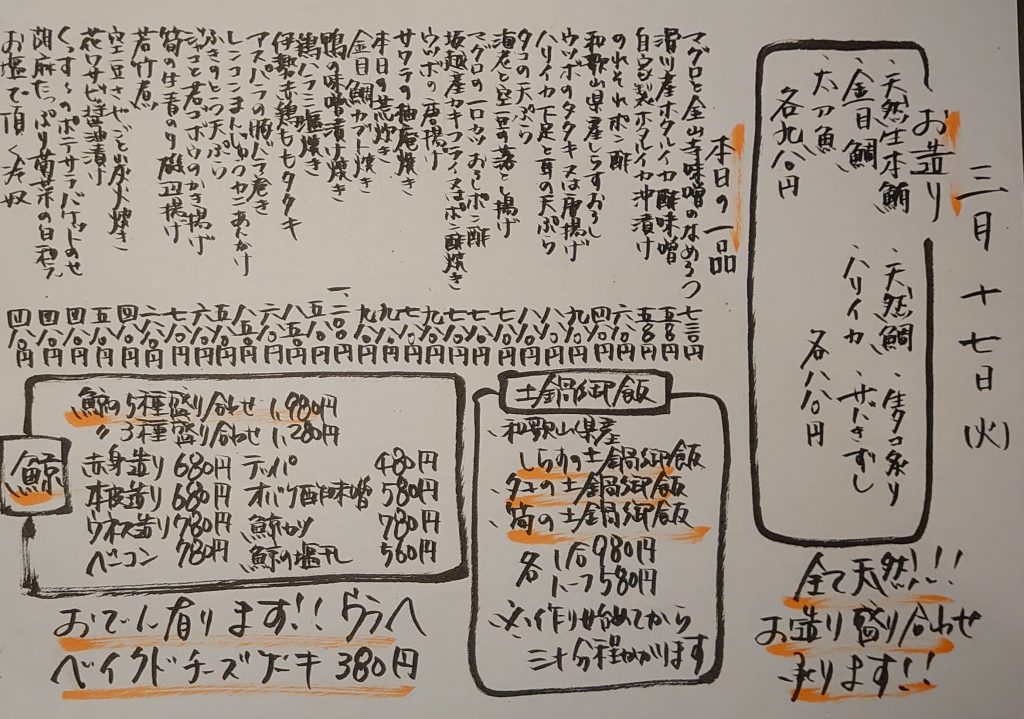 三月十七日(火)
お造り
・天然生本鮪
・金目鯛
・太刀魚
各九八〇円
・天然鯛
・ハリイカ
・生タコ炙り
・サバきずし
各八八〇円
全て天然!!!
お造り盛り合わせ
承ります!!
本日の一品
マグロと金山寺味噌のなめろう 七三〇円
滑川産ホタルイカ酢味噌 五八〇円
自家製ホタルイカ沖漬け 五八〇円
のれそれポン酢 六八〇円
和歌山県産しらすおろし 四八〇円
ウツボのタタキ又は唐揚げ 九八〇円
ハリイカ下足と耳の天ぷら
タコの天ぷら
海老と空豆の落し揚げ
マグロの一口カツおろしポン酢
坂越産カキフライ又はポン酢焼き
ウツボの唐揚げ
サワラの柚庵焼き
本日の荒炊き
金目鯛カブト焼き
鴨の味噌漬け焼き
鶏ハラミ塩焼き
伊勢赤鶏ももタタキ
アスパラの豚バラ巻き
レンコンまんじゅうカニあんかけ
ふきのとう天ぷら
ジャコと若ゴボウのかき揚げ
筍の生青のり磯辺揚げ
若竹煮
空豆さやごと炭火焼き
花ワサビ醤油漬け
くっすんのポテサラバケットのせ
胡麻たっぷり菊菜の白和え
お塩で頂く冷奴
土鍋御飯
・和歌山県産
しらすの土鍋御飯
タコの土鍋御飯
筍の土鍋御飯
各 1合980円
ハーフ580円
※作り始めてから
三十分程かかります
鯨
鯨の5種盛り合わせ 1,980円
〃3種盛り合わせ 1,280円
赤身造り 680円 テッパ 480円
本皮造り 680円 オバケ酢味噌 580円
ウネス造り 780円 鯨カツ 780円
ベーコン 780円 鯨の塩干し 560円
おでん有ります!! ウラへ
ベイクドチーズケーキ 380円